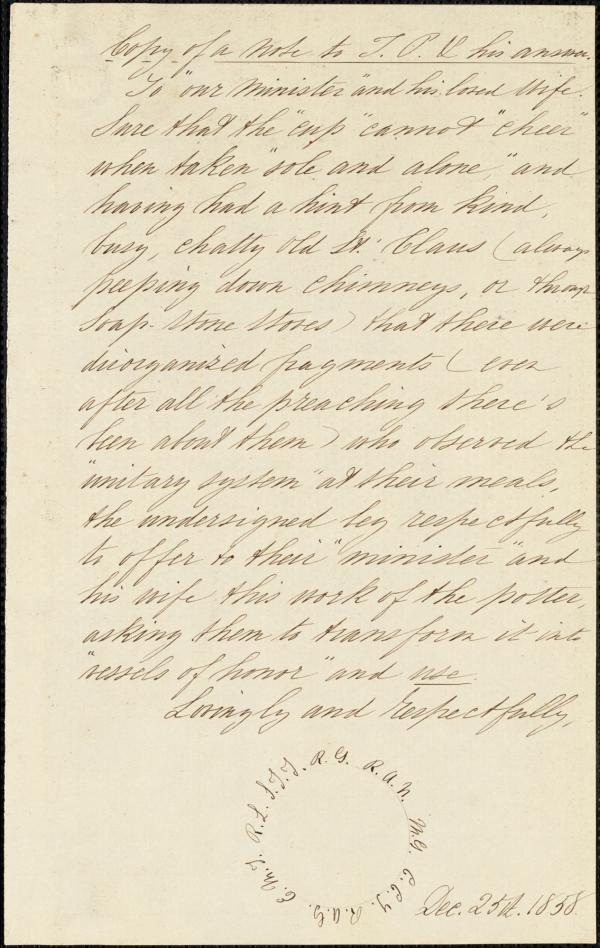 Copy of a note to T. P. & his answer.
To "our minister" and his loved wife.
Sure that the "cup" cannot "cheer"
when taken "sole and alone," and
having had a hint from kind,
busy, chatty old St. Claus (always
peeping down chimneys, or through
Soap-Stone Stoves) that there were
disorganized fragments (even
after all the preaching there's
been about them) who observed the
"unitary system" at their meals,
the undersigned beg respectfully
to offer to their "minister" and
his wife this work of the potter,
asking them to transform it into
"vessels of honor" and use.
Lovingly and respectfully,
R. G. R. A. N. M. G. C. C. R. A. G. R. L.
Dec. 25th. 1858